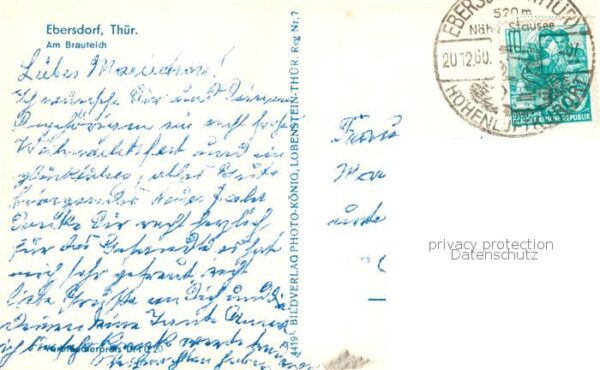 Ebersdorf, Thür.
Am Brauteich
Liebes Mariechen!
Ich wünsche Dir und Deinen
Angehörigen ein recht frohes
Weihnachtsfest und ein
glückliches, alles Gute
bringendes neues Jahr
Danke Dir recht herzlich
für das Gesandte es hat
mich sehr gefreut recht
liebe Grüße an Dich und die
Deinen Deine Tante
ich
Verbraucherpreis DM 0,20
44191 BILDVERLAG PHOTO-KÖNIG, LOBENSTEIN-THÜR. Reg Nr. 7
Frau
520 m
Nähe Stausee
20.12.60.
HOHENLUFTKURORT
REPUBLIK
privacy protection
Datenschutz